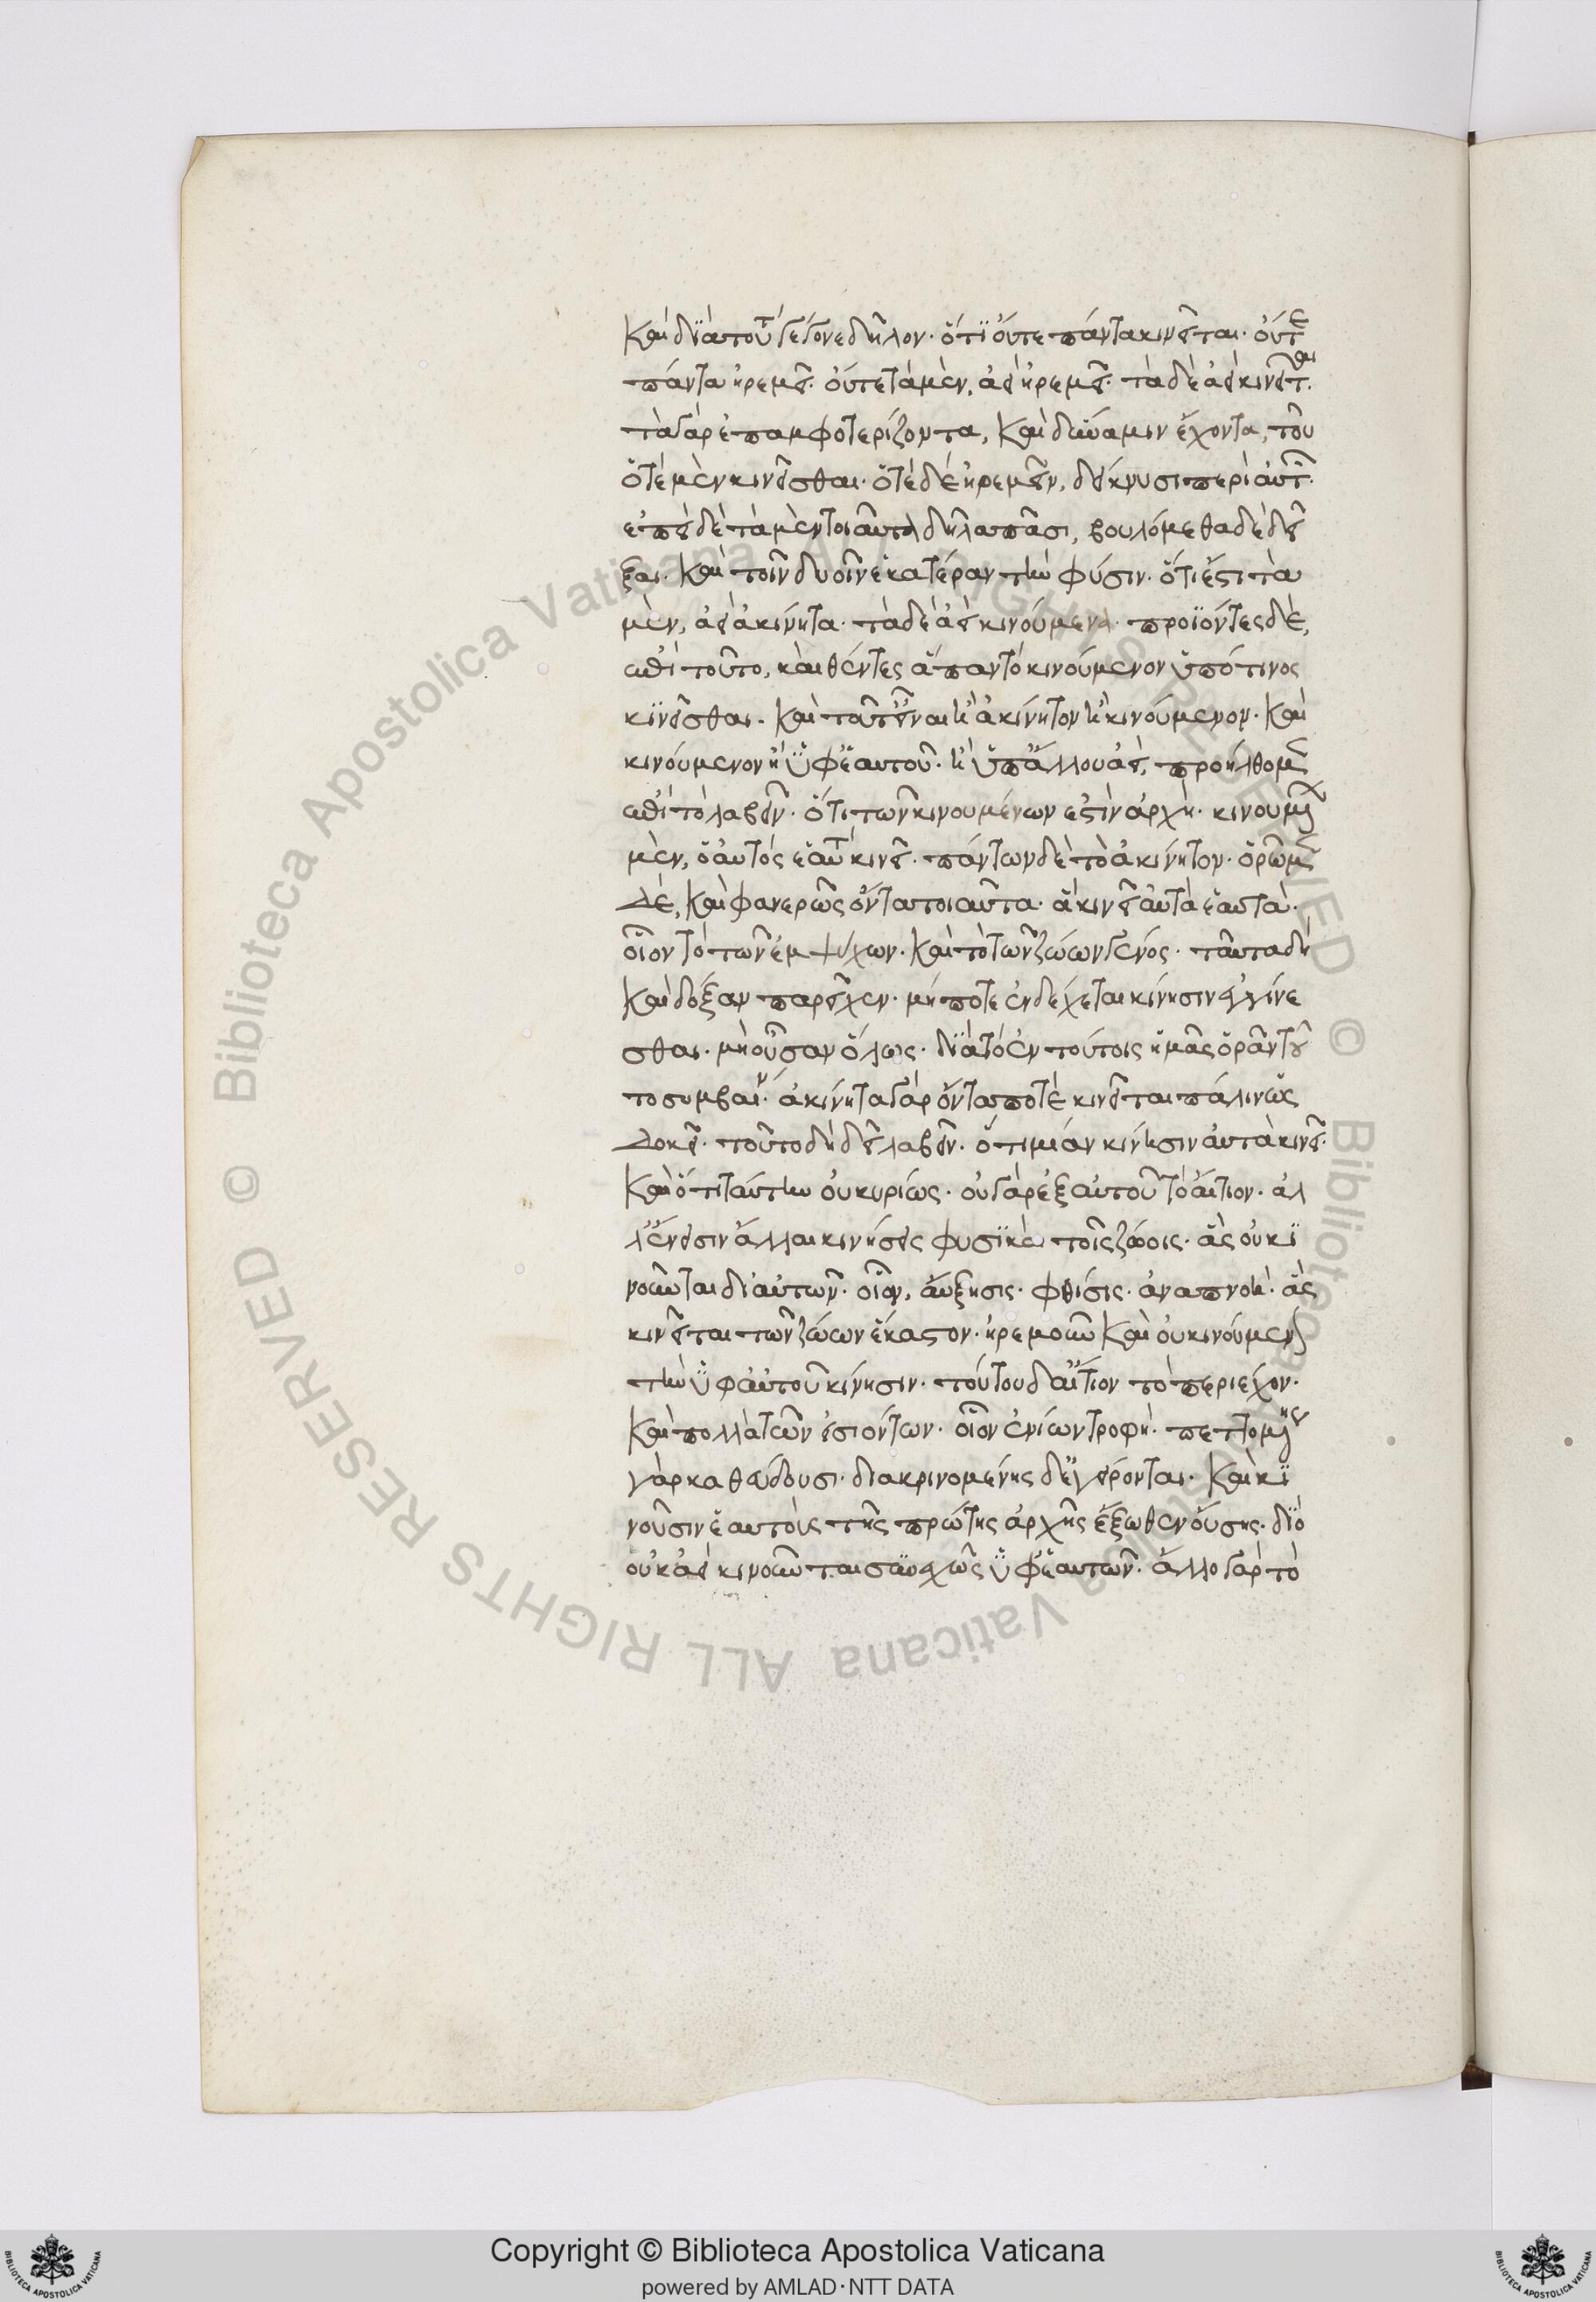 καὶ διὰ τοῦτο γέγονε δῆλον· ὅτι οὔτε πάντα κινεῖται· οὔτε
πάντα ἠρεμεῖ· οὔτε τὰ μὲν, ἀεὶ ἠρεμεῖ· τὰ δὲ ἀεὶ κινεῖται·
τὰ γὰρ ἐπαμφοτερίζοντα, καὶ δύναμιν ἔχοντα, τοῦ
ὁτὲ μὲν κινεῖσθαι· ὁτὲ δὲ ἠρεμεῖν, δείκνυσι περὶ αὐτῶν·
ἐπεὶ δὲ τὰ μὲν τοιαῦτα δῆλα πᾶσι, βουλόμεθα δὲ δεῖ
ξαι· καὶ τοῖν δυοῖν ἑκατέραν τὴν φύσιν· ὅτι ἔστι τὰ
μὲν, ἀεὶ ἀκίνητα· τὰ δὲ ἀεὶ κινούμενα· προϊόντες δὲ,
ἐπὶ τοῦτο, καὶ θέντες ἅπαν τὸ κινούμενον ὑπό τινος
κινεῖσθαι· καὶ τοῦτ' εἶναι ἢ ἀκίνητον ἢ κινούμενον· καὶ
κινούμενον ἢ ὑφ' ἑαυτοῦ· ἢ ὑπ' ἄλλου ἀεί, προήλθομεν
ἐπὶ τὸ λαβεῖν· ὅτι τῶν κινουμένων ἐστὶν ἀρχὴ· κινουμένων
μὲν, ὃ αὐτὸς ἑαυτὸ κινεῖ· πάντων δὲ τὸ ἀκίνητον· ὁρῶμεν
δὲ, καὶ φανερῶς ὄντα τοιαῦτα· ἃ κινεῖ αὐτὰ ἑαυτά·
οἷον τὸ τῶν ἐμψύχων· καὶ τὸ τῶν ζώων γένος· ταῦτα δὴ
καὶ δόξαν παρεῖχεν· μή ποτε ἐνδέχεται κίνησιν ἐγγίνε
σθαι· μὴ οὖσαν ὅλως· διὰ τὸ ἐν τούτοις ἡμᾶς ὁρᾶν τοῦ
το συμβαῖνον· ἀκίνητα γὰρ ὄντα ποτὲ κινεῖται πάλιν ὡς
δοκεῖ· τοῦτο δὴ δεῖ λαβεῖν· ὅτι μίαν κίνησιν αὐτὰ κινεῖ·
καὶ ὅτι ταύτην οὐ κυρίως· οὐ γὰρ ἐξ αὐτοῦ τὸ αἴτιον· ἀλ
λ' ἔνεισιν ἄλλαι κινήσεις φυσικαὶ τοῖς ζώοις· ἃς οὐ κι
νοῦνται δι' αὐτῶν· οἷον, αὔξησις· φθίσις· ἀναπνοή· ἃς
κινεῖται τῶν ζώων ἕκαστον· ἠρεμοῦν καὶ οὐ κινούμενον
τὴν ὑφ' αὐτοῦ κίνησιν· τούτου δ' αἴτιον τὸ περιέχον·
καὶ πολλὰ τῶν εἰσιόντων· οἷον ἐνίων τροφή· πεπτομένης
γὰρ καθεύδουσι· διακρινομένης δ' ἐγείρονται· καὶ κι
νοῦσιν ἑαυτοὺς τῆς πρώτης ἀρχῆς ἔξωθεν οὔσης· διὸ
οὐκ ἀεὶ κινοῦνται συνεχῶς ὑφ' ἑαυτῶν· ἄλλο γὰρ τὸ
Copyright © Biblioteca Apostolica Vaticana
powered by AMLAD·NTT DATA